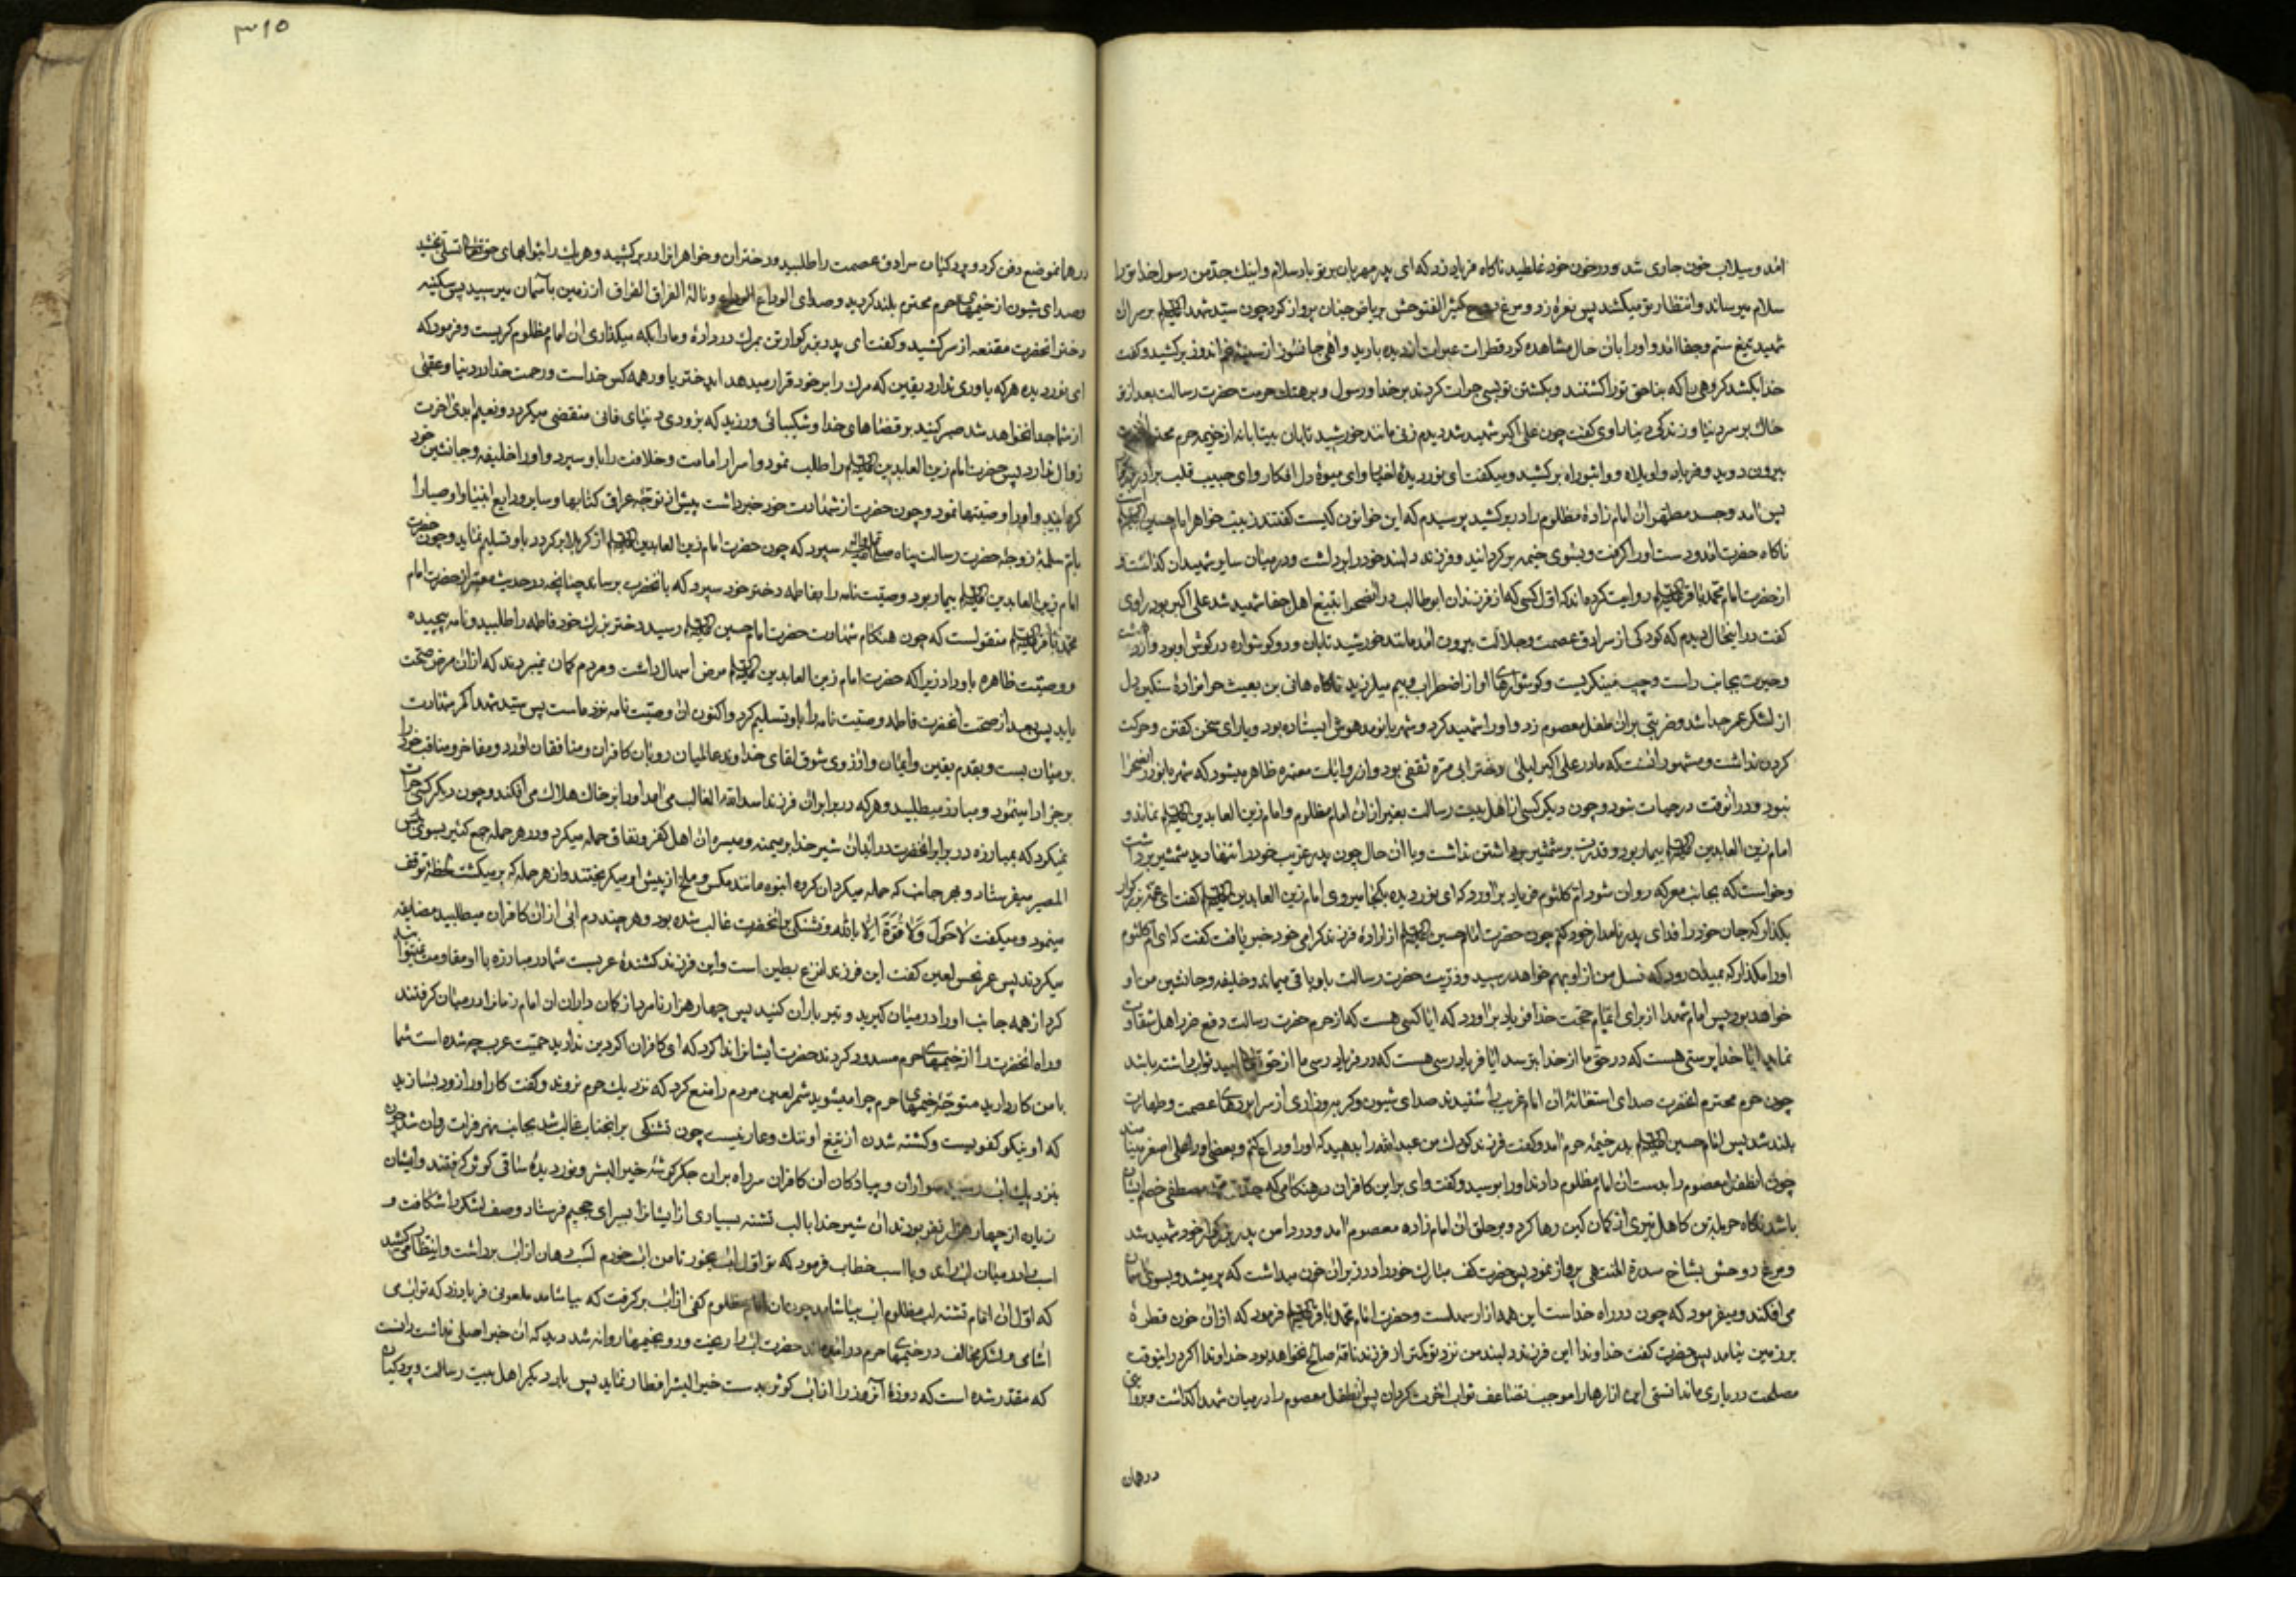 آمد و سیلاب خون جاری شد و در خون خود غلطید ناکاه فریاد زد که ای پدر مهربان بر تو باد سلام و اینک جد من رسول خدا تو را
سلام میرساند و انتظار تو میکشد پس نعره زد و مرغ روح کثیر الفتوحش بریاض جنان پرواز کرد چون سید شهدا علیه السلام بر سر آن
شهید تیغ ستم و جفا آمد و او را بان حال مشاهده کرد قطرات عبرات از دیده بارید و آهی جانسوز از سینه غم اندوز برکشید و کفت
خدا بکشد کروهی را که بناحق تو را کشتند و بکشتن تو بسی جرات کردند بر خدا و رسول و بر هتک حرمت حضرت رسالت بعد از تو
خاک بر سر دنیا و زندکی دنیا راوی کفت چون علی اکبر شهید شد دیدم زنی مانند خورشید تابان بیتابانه از خیمه حرم محترم
بیرون دوید و فریاد واویلاه و واثبوراه برکشید و میکفت ای نور دیده اخیار و ای میوه دل افکار و ای حبیب قلب برادر بزرکوار
پس آمد و جسد مطهر آن امام زاده مظلوم را در بر کشید پرسیدم که این خاتون کیست کفتند زینب خواهر امام حسین علیه السلام
ناکاه حضرت آمد و دست او را کرفت و بسوی خیمه برکردانید و فرزند دلبند خود را برداشت و در میان سایر شهیدان کذاشت و
از حضرت امام محمد باقر علیه السلام روایت کرده اند که اول کسی که از فرزندان ابو طالب در آنصحرا بتیغ اهل جفا شهید شد علی اکبر بود راوی
کفت در اینحال دیدم که کودکی از سرادق عصمت و جلالت بیرون آمد مانند خورشید تابان و دو کوشواره در کوش او بود و از دهشت
و حیرت بجانب راست و چپ مینکریست و کوشوارهای او از اضطراب و بیم میلرزید ناکاه هانی بن بعیث حرامزاده سنکین دل
از لشکر عمر جدا شد و ضربتی بر آن طفل معصوم زد و او را شهید کرد و شهربانو مدهوش ایستاده بود و یارای سخن کفتن و حرکت
کردن نداشت و مشهور آنست که مادر علی اکبر لیلی دختر ابی مره ثقفی بود و از روایات معتبره ظاهر میشود که شهربانو در آنصحرا
نبود و در آنوقت در حیات نبود و چون دیکر کسی از اهل بیت رسالت بغیر از آن امام مظلوم و امام زین العابدین علیه السلام نماند و
امام زین العابدین علیه السلام بیمار بود و قدرت بر شمشیر برداشتن نداشت و با آن حال چون پدر عزیب خود را تنها دید شمشیر برداشت
و خواست که بجانب معرکه روان شود ام کلثوم فریاد برآورد که ای نور دیده بکجا میروی امام زین العابدین علیه السلام کفت ای عمه بزرکوار
بکذار که جان خود را فدای پدر نامدار خود کنم چون حضرت امام حسین علیه السلام از اراده فرزند کرامی خود خبر یافت کفت که ای ام کلثوم
او را مکذار که بمیدان رود که نسل من از او بهم خواهد رسید و ذریت حضرت رسالت باو باقی میماند و خلیفه و جانشین من او
خواهد بود پس امام شهدا از برای اتمام حجت خدا فریاد برآورد که آیا کسی هست که از حرم حضرت رسالت دفع ضرر اهل شقاوت
نماید آیا خدا پرستی هست که در حق ما از خدا بترسد آیا فریاد رسی هست که در فریاد رسی ما از حق تعالی امید ثواب داشته باشد
چون حرم محترم آنحضرت صدای استغاثه آن امام غریب را شنیدند صدای شیون و کریه و زاری از سراپردهای عصمت و طهارت
بلند شد پس امام حسین علیه السلام بدر خیمه حرم آمد و کفت فرزند کوچک من عبد الله را بدهید که او را وداع کنم و بعضی او را علی اصغر مینامند
چون آنطفل معصوم را بدست آن امام مظلوم دادند او را بوسید و کفت وای بر این کافران در هنکامی که جدت محمد مصطفی خصم ایشان
باشد ناکاه حرمله بن کاهل تیری از کمان کین رها کرد و بر حلق آن امام زاده معصوم آمد و در دامن پدر بزرکوار خود شهید شد
و مرغ روحش بشاخ سدرة المنتهی پرواز نمود پس حضرت کف مبارک خود را در زیر آن خون میداشت که پر میشد و بسوی آسمان
می افکند و میفرمود که چون در راه خداست این همه آزار سهلست و حضرت امام محمد باقر علیه السلام فرمود که از آن خون قطره
بر زمین نیامد پس حضرت کفت خداوندا این فرزند دلبند من نزد تو کمتر از فرزند ناقه صالح نخواهد بود خداوندا اکر در اینوقت
مصلحت در یاری ما ندانستی این آزارها را موجب تضاعف ثواب آخرت کردان پس آنطفل معصوم را در میان شهدا کذاشت و بروایتی
در همان
۳۱۵
در همانموضع دفن کرد و پردکیان سرادق عصمت را طلبید و دختران و خواهران را در بر کشید و هر یک را بثوابهای حق تعالی تسلی بخشید
و صدای شیون از خیمهای حرم محترم بلند کردید و صدای الوداع الوداع و ناله الفراق الفراق از زمین بآسمان میرسید پس سکینه
دختر آنحضرت مقنعه از سر کشید و کفت ای پدر بزرکوار تن بمرک درداده و ما را بکه میکذاری آن امام مظلوم کریست و فرمود که
ای نور دیده هر که یاوری ندارد یقین که مرک را بر خود قرار میدهد ای دختر یاور همه کس خداست و رحمت خدا در دنیا و عقبی
از شما جدا نخواهد شد صبر کنید بر قضاهای خدا و شکیبائی ورزید که بزودی دنیای فانی منقضی میکردد و نعیم ابدی آخرت
زوال ندارد پس حضرت امام زین العابدین علیه السلام را طلب نمود و اسرار امامت و خلافت را باو سپرد و او را خلیفه و جانشین خود
کردانید و او را وصیتها نمود و چون حضرت از شهادت خود خبر داشت پیش از توجه عراق کتابها و سایر ودایع انبیا و اوصیا را
بام سلمه زوجه حضرت رسالت پناه سپرد که چون حضرت امام زین العابدین علیه السلام از کربلا برکردد باو تسلیم نماید و چون حضرت
امام زین العابدین علیه السلام بیمار بود وصیت نامه را بفاطمه دختر خود سپرد که بآنحضرت برساند چنانچه در حدیث معتبر از حضرت امام
محمد باقر علیه السلام منقولست که چون هنکام شهادت حضرت امام حسین علیه السلام رسید دختر بزرک خود فاطمه را طلبید و نامه پیچیده
و وصیت ظاهره باو داد زیرا که حضرت امام زین العابدین علیه السلام مرض اسهال داشت و مردم کمان نمیبردند که از آن مرض صحت
یابد پس بعد از صحت آنحضرت فاطمه وصیت نامه را باو تسلیم کرد و اکنون آن وصیت نامه نزد ماست پس سید شهدا کمر شهادت
بر میان بست و بقدم یقین و ایمان و آرزوی شوق لقای خداوند عالمیان رو بآن کافران و منافقان آورد و مفاخر و مناقب خود را
برجز ادا مینمود و مبارز میطلبید و هر که در برابر آن فرزند اسد الله الغالب می آمد او را بر خاک هلاک می افکند و چون دیکر کسی جرات
نمیکرد که بمبارزه در برابر آنحضرت درآید آن شیر خدا بر میمنه و میسره آن اهل کفر و نفاق حمله میکرد و در هر حمله جمع کثیر بسوی بئس
المصیر میفرستاد و بهر جانب که حمله میکرد آن کروه انبوه مانند مکس و ملخ از پیش او میکریختند و از هر حمله که بر میکشت لحظه توقف
مینمود و میکفت لَا حَوْلَ وَلَا قُوَّةَ اِلَّا بِاللّٰه و تشنکی بر آنحضرت غالب شده بود و هر چند دم آبی از آن کافران میطلبید مضایقه
میکردند پس عمر نحس لعین کفت این فرزند انزع بطین است و این فرزند کشنده عربست شما در مبارزه با او مقاومت نمیتوانید
کرد از همه جانب او را در میان کیرید و تیر باران کنید پس چهار هزار نامرد از کمان داران آن امام زمان را در میان کرفتند
و راه آنحضرت را از خیمهای حرم مسدود کردند حضرت ایشانرا ندا کرد که ای کافران اکر دین ندارید حمیت عرب چه شده است شما
با من کار دارید متوجه خیمهای حرم چرا میشوید شمر لعین مردم را منع کرد که نزدیک حرم نروند و کفت کار او را زود بسازید
که او نیکو کفویست و کشته شدن از تیغ او ننک و عار نیست چون تشنکی بر آنجناب غالب شد بجانب نهر فرات روان شد چون
بنزدیک آب رسید سواران و پیادکان آن کافران سر راه بر آن جکر کوشه خیر البشر و نور دیده ساقی کوثر کرفتند و ایشان
زیاده از چهار هزار نفر بودند آن شیر خدا با لب تشنه بسیاری از ایشانرا بسرای جحیم فرستاد و صف لشکر را شکافت و
اسب را در میان آب راند و با اسب خطاب فرمود که تو اول آب بخور تا من آب خورم اسب دهان از آب برداشت و انتظار میکشید
که اول آن امام تشنه لب مظلوم آب بیاشامد چون آن امام مظلوم کفی از آب برکرفت که بیاشامد ملعونی فریاد زد که تو آب می
آشامی و لشکر مخالف در خیمهای حرم درآمده اند حضرت آب را ریخت و رو بخیمها روانه شد دید که آن خبر اصلی نداشت دانست
که مقدر شده است که روزه آنروز را از آب کوثر بدست خیر البشر افطار نماید پس بار دیکر اهل بیت رسالت و پردکیان